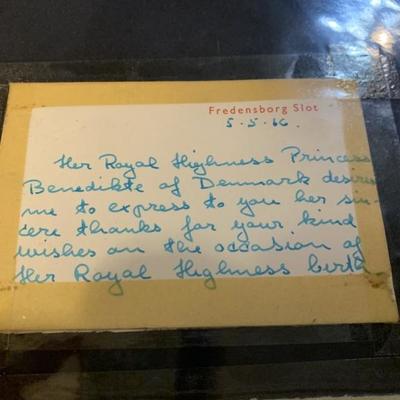 Fredensborg Slot
5.5.66.
Her Royal Highness Princess
Benedikte of Denmark desires
me to express to you her sin-
cere thanks for your kind
wishes on the occasion of
Her Royal Highness birth